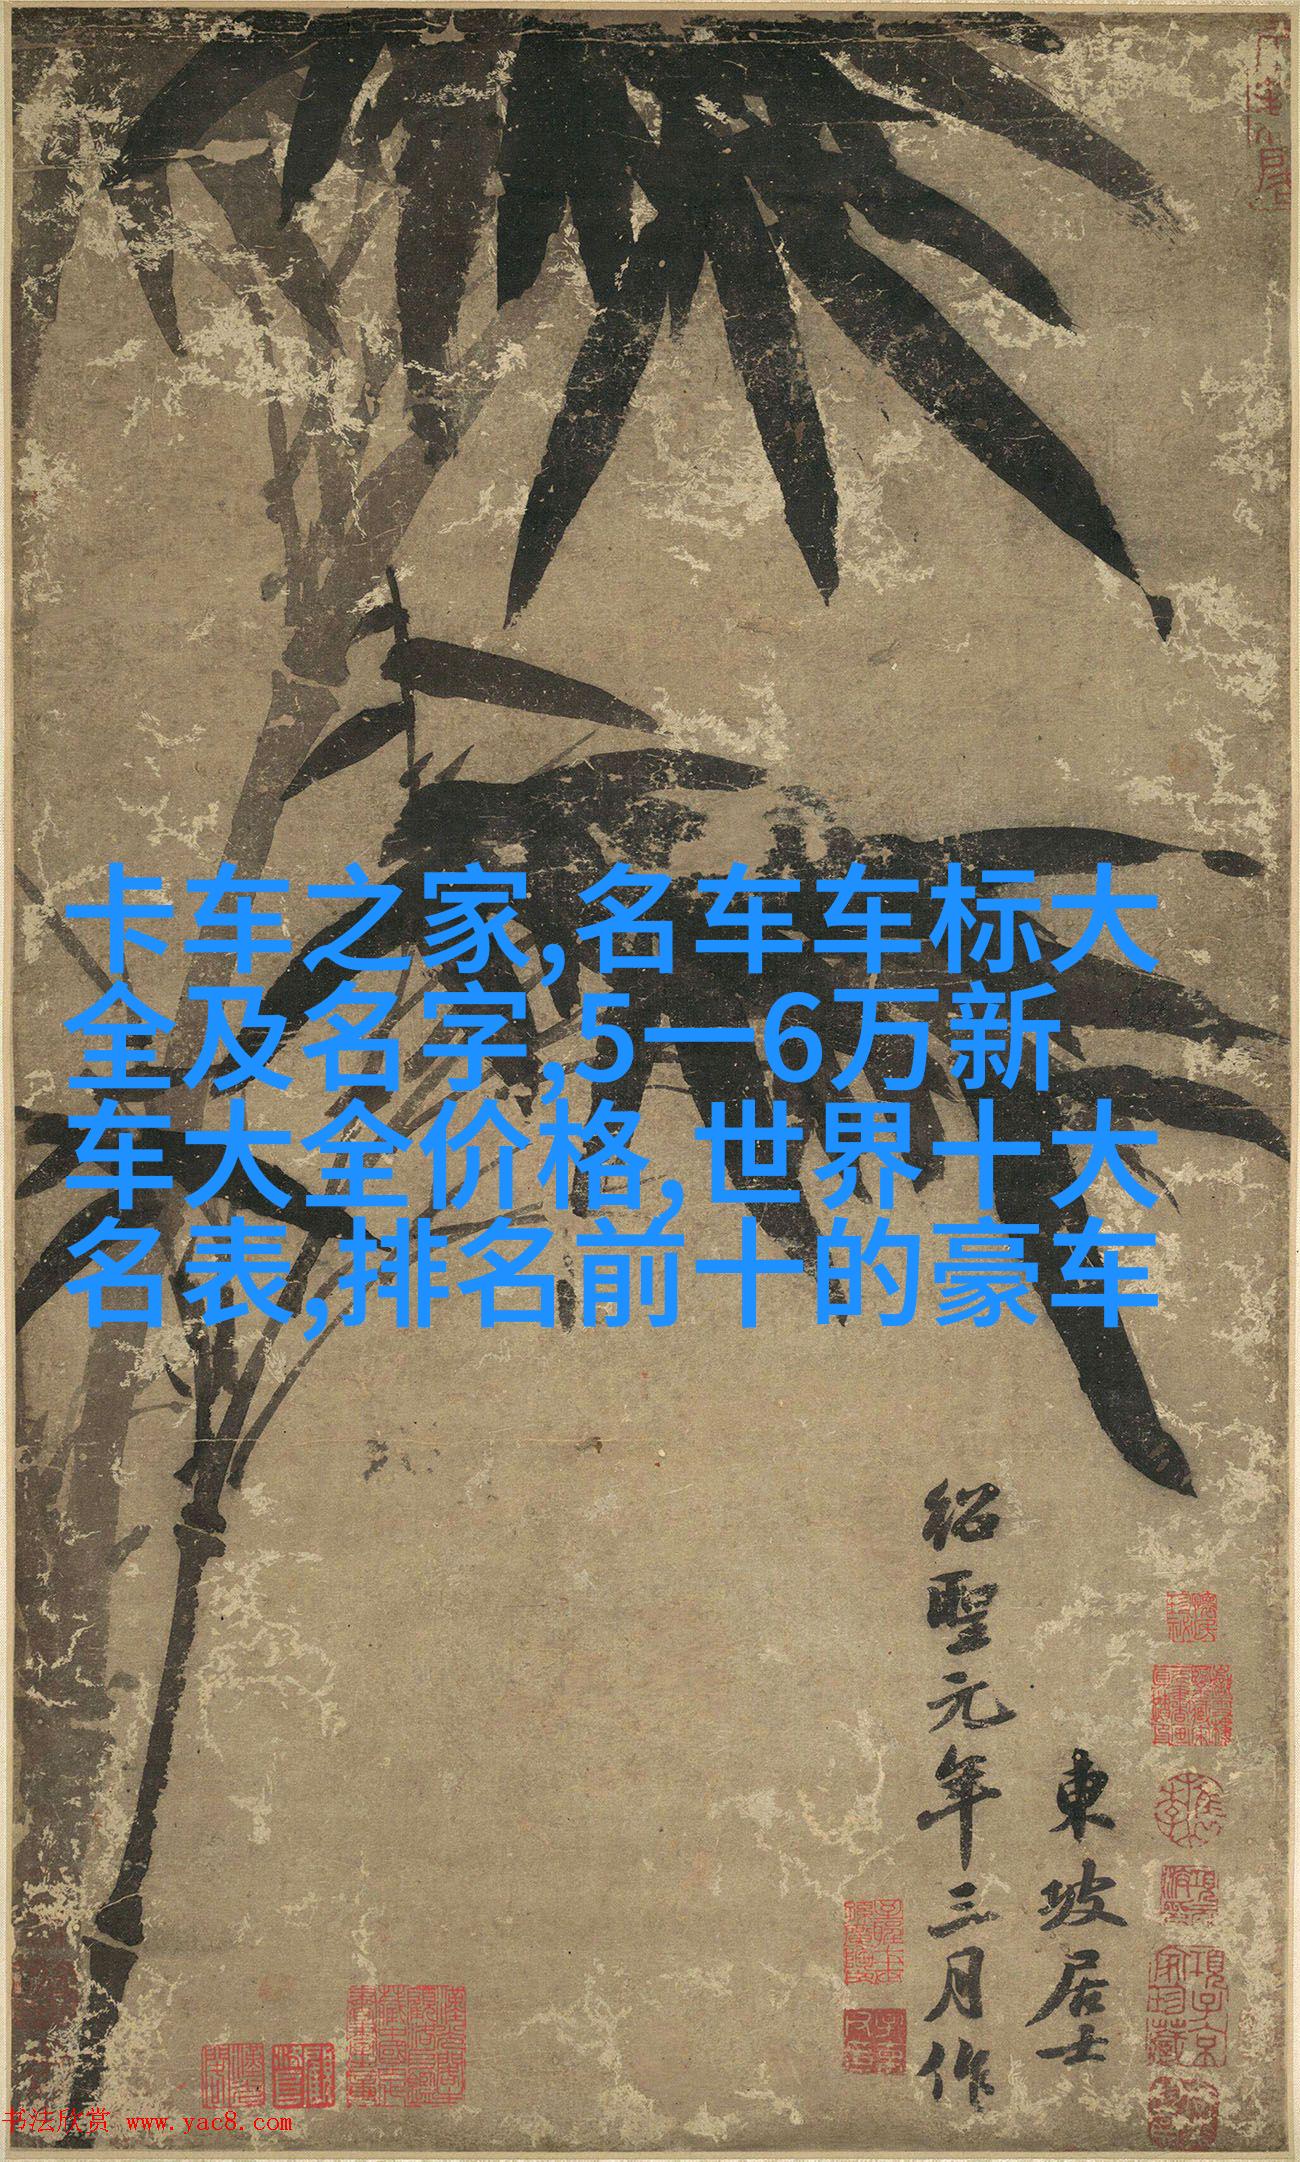 卡车之家,名车车标大
全及名字,5一6万新
车大全价格,世界十大
名表,排名前十的豪车
紹聖元年三月作
東坡居士
书法欣赏 www.yac8.com